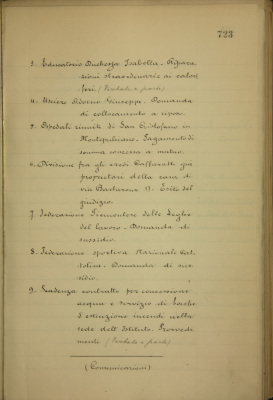 723
3. Educatorio Duchessa Isabella - Ripara
zioni straordinarie ai calori
feri. (Verbale a parte)
4. Usciere Riderno Giuseppe. Domanda
di collocamento a riposo.
5. Ospedali riuniti di San Cristoforo in
Montepulciano. Pagamento di
somma concessa a mutuo.
6. Divisione fra gli eredi già
proprietari della casa di
via Barbaroux 17. Esito del
giudizio.
7. Federazione Piemontese delle Leghe
del lavoro - Domanda di
sussidio.
8. Federazione sportiva Nazionale Cat-
tolica. Domanda di sus-
sidio.
9. Scadenza contratto per concessione
acqua e servizio di bocche
d'estinzione incendi nella
sede dell'Istituto. Provvedi
menti (Verbale a parte)
(Comunicazioni)